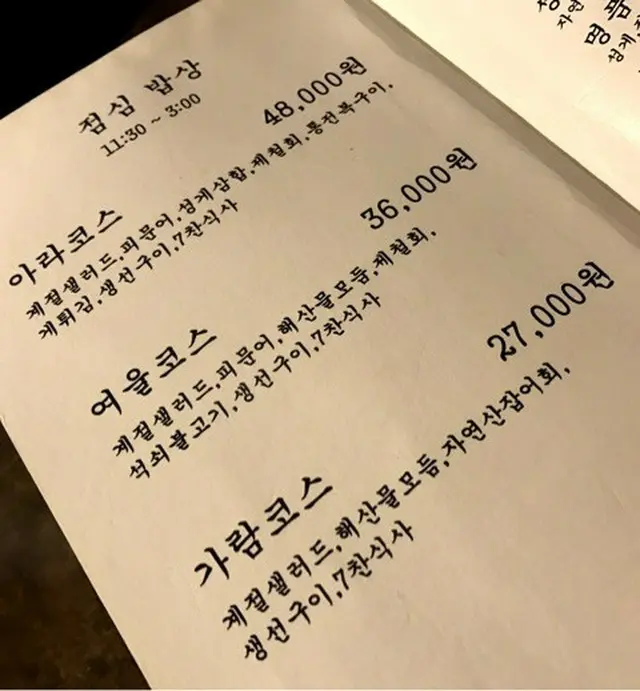 점심 밥상
11:30 ~ 3:00
아라코스 48,000원
계절샐러드,피문어,성게삼합,제철회,통전복구이,
게튀김,생선구이,7찬식사
여울코스 36,000원
계절샐러드,피문어,해산물모듬,제철회,
석쇠불고기,생선구이,7찬식사
가람코스 27,000원
계절샐러드,해산물모듬,자연산잡어회,
생선구이,7찬식사
자연
명품
성게,